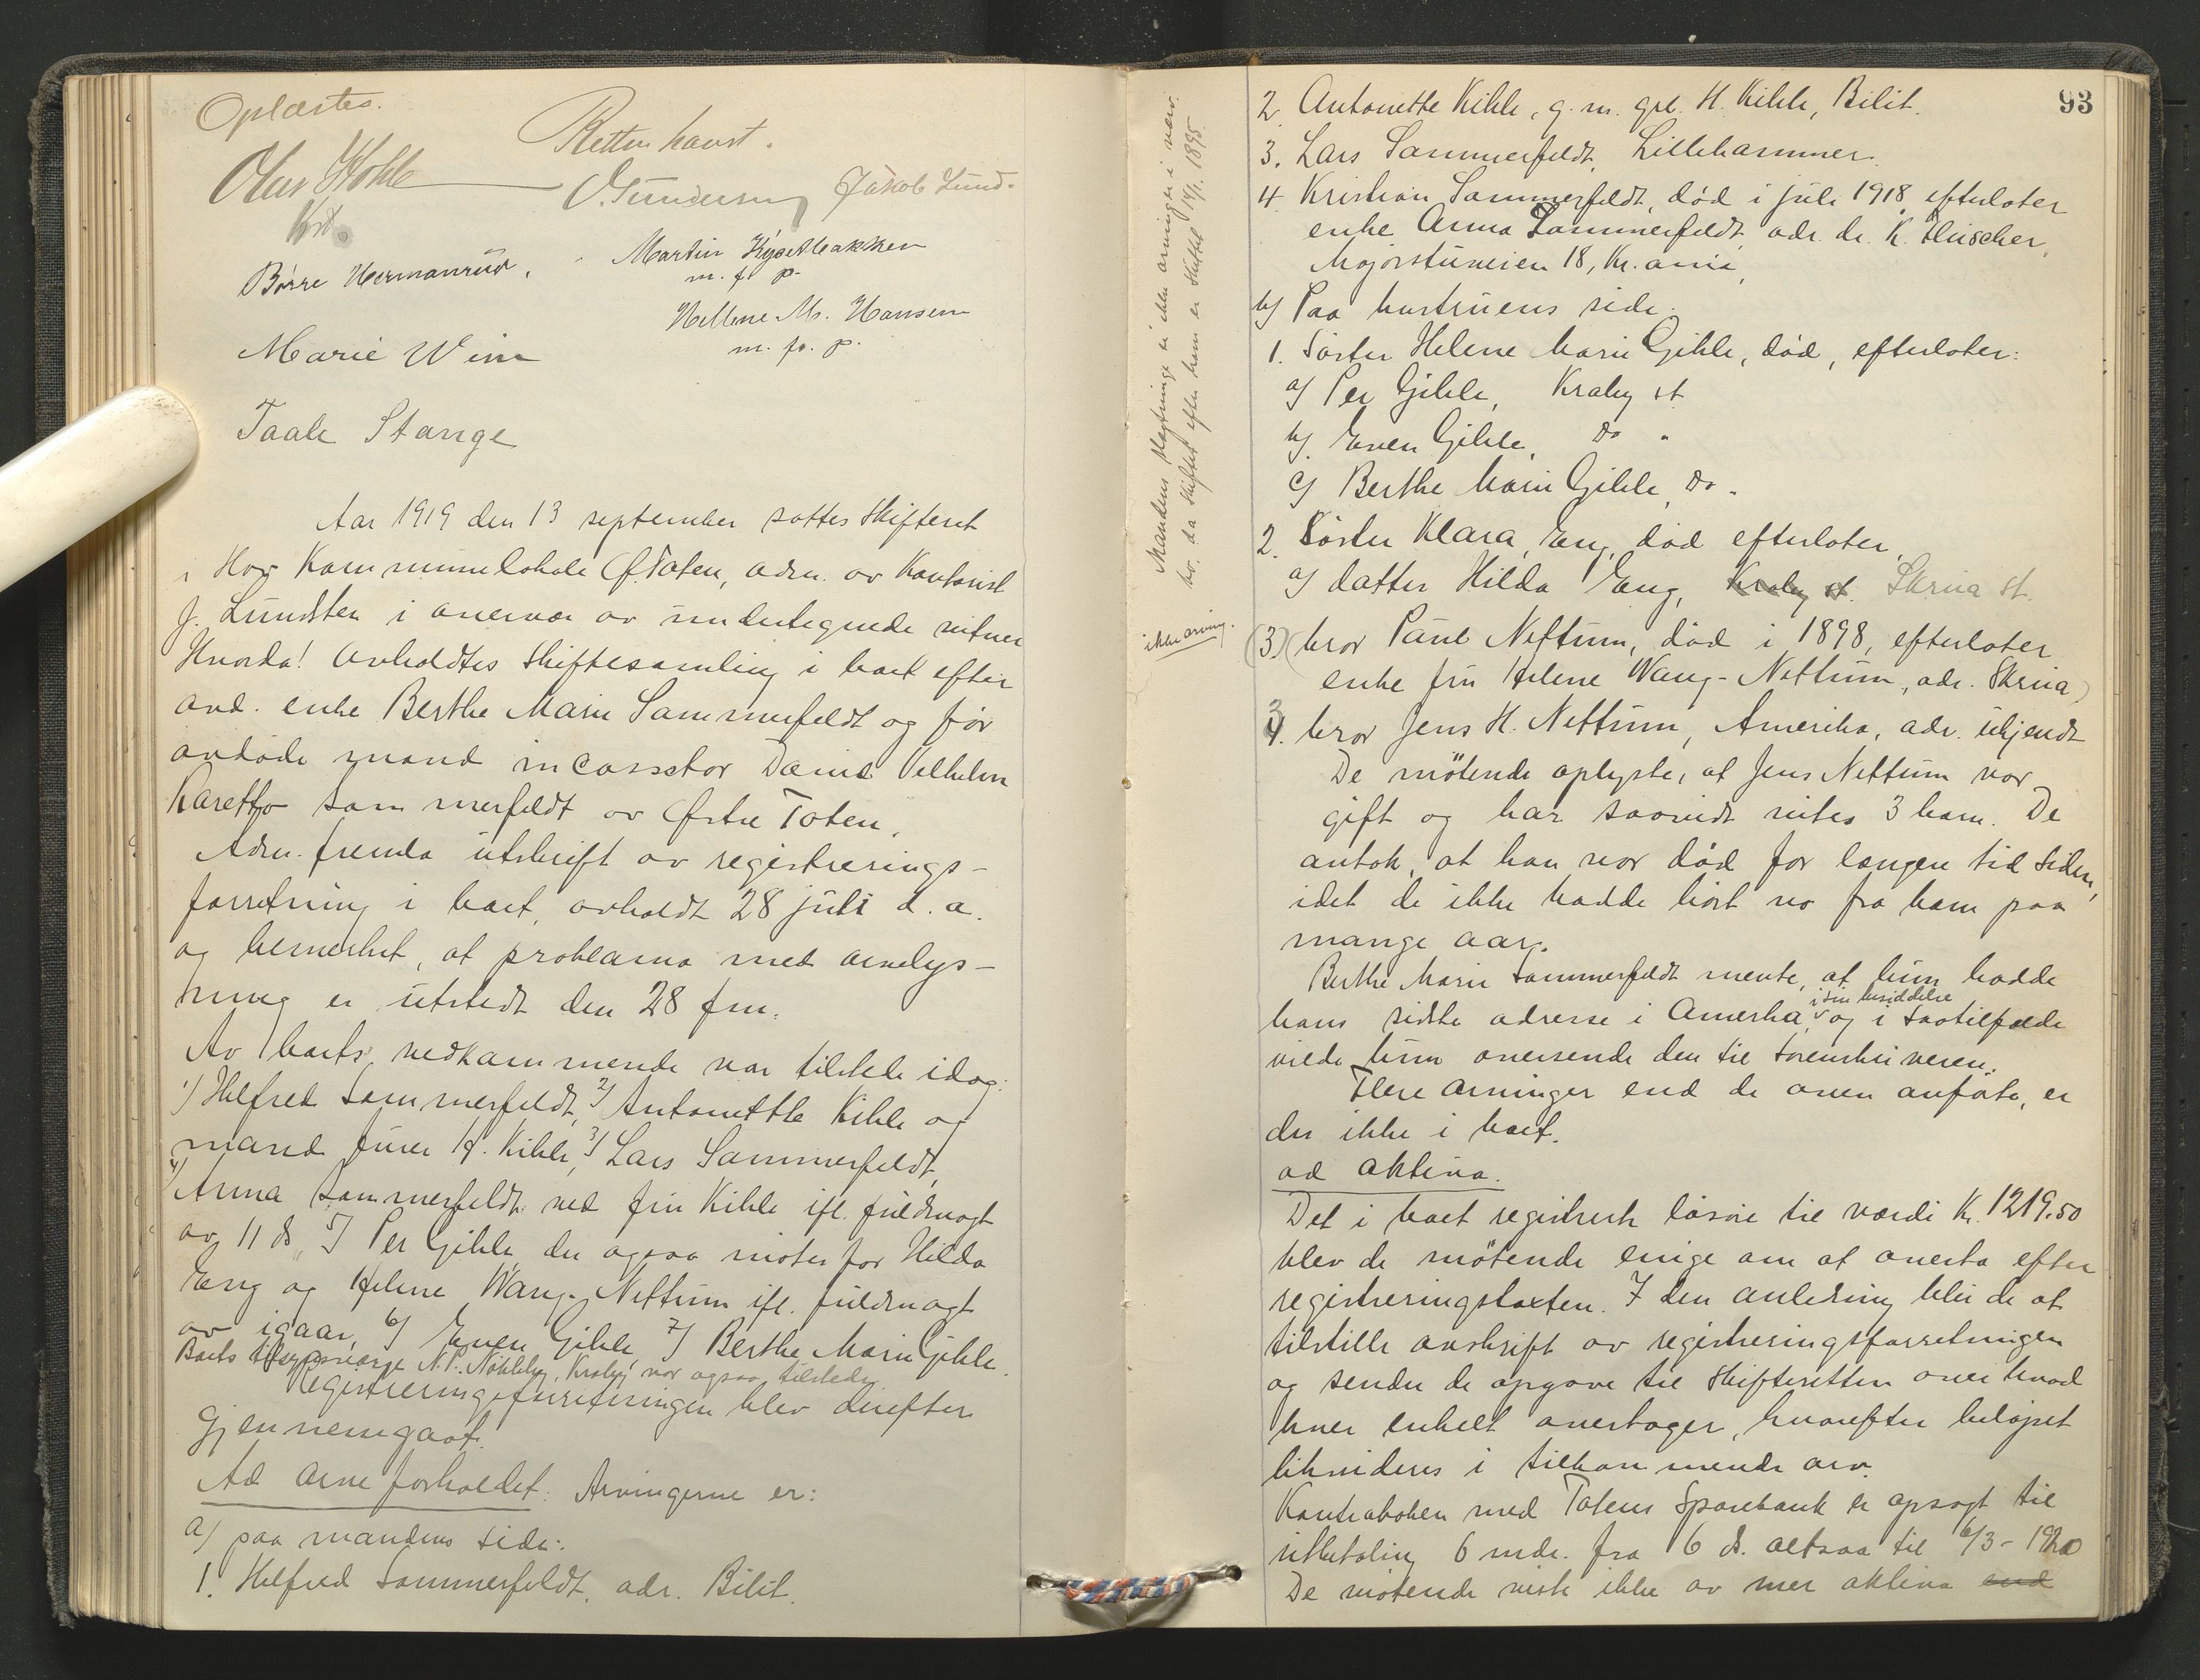 Oplæstes.
Retten hævet.
Olus Kohle
O. Gundersen Jakob Lund.
Kst.
Børre Hermanrud,
Martin Kyset bakken
m. f. p.
Hellene M. Hansen
m. p. p.
Marie Wiin
Taale Stange
Aar 1919 den 13 september sattes Skifteret
i Hov Kommunelokale Ø. Toten, adm. av Kontorist
J. Lundsten i overvær av undertegnede vitner
Hvorda! Avholdtes Skiftesamling i boet efter
avd. enke Berthe Marie Sommerfeldt og før
avdøde mand incassator Daniel Velhelm
Sommerfeldt av Østre Toten.
Adm. fremla utskrift av registrerings-
forretning i boet, avholdt 28 juli d. a.
og bemerket, at proklama med arvelys-
ning er utstedt den 28 f.m.
Av boets vedkommende var tilstede idag:
1) Helfred Sommerfeldt, 2) Antonette Kihle og
mand furer H. Kihle, 3) Lars Sommerfeldt,
4) Anna Sommerfeldt ved fru Kihle ifl. fuldmagt
av 11 ds. 5) Per Gihle der ogsaa møter for Hilda
Eng og Helene Wang-Nettum ifl. fuldmagt
av igaar, 6) Even Gihle 7) Berthe Marie Gihle.
Boets tilsynsværge N. P. Nøkleby, Kraby, var ogsaa tilstede.
Registreringsforretningen blev derefter
gjennemgaat.
Ad arveforholdet: Arvingerne er:
a) paa mandens side:
1. Helfred Sommerfeldt, adr. Bilit.
93
2. Antonette Kihle, g. m. grb. H. Kihle, Bilit.
3. Lars Sommerfeldt, Lillehammer.
4. Kristian Sommerfeldt, død i juli 1918, efterlater
enke Anna Sommerfeldt, adr. dr. K. Fleischer,
Majorstuveien 18, Kr.ania,
b) Paa hustruens side.
1. Søster Helene Marie Gihle, død, efterlater:
a) Per Gihle, Kraby st
b) Even Gihle, Do "
c) Berthe Marie Gihle, Do "
2. Søster Klara Eng, død efterlater,
a) datter Hilda Eng, Kraby st. Skreia st.
ikke arving.
(3.) (bror Paul Nettum, død i 1898, efterlater
enke fru Helene Wang-Nettum, adr. Skreia)
3
4. bror Jens H. Nettum, Amerika, adr. ukjendt
De møtende oplyste, at Jens Nettum var
gift og har saavidt vites 3 barn. De
antok, at han var død for længere tid siden,
idet de ikke hadde hørt no fra ham paa
mange aar.
Berthe Marie Sommerfeldt mente, at hun hadde
hans sidste adresse i Amerika, i sin besiddelse og i saatilfælde
vilde hun oversende den til sorenskriveren.
Flere arvinger end de oven anførte, er
der ikke i boet.
ad aktiva.
Det i boet registrerte løsøre til værdi Kr. 1219.50
blev de møtende enige om at overta efter
registreringstaxten. I den anledning blir de at
tilstille avskrift av registreringsforretningen
og sender de opgave til Skifteretten over hvad
hver enkelt overtager, hvorefter beløpet
likvideres i tilkommende arv.
Kontraboken med Totens Sparebank er opsagt til
utbetaling 6 mdr. fra 6 ds. altsaa til 6/3 - 1920
De møtende visste ikke av mer aktiva end
Mandens slegtninge er ikke arvinger i nærv.
bo. da skiftet efter ham er sluttet 14/1. 1895.